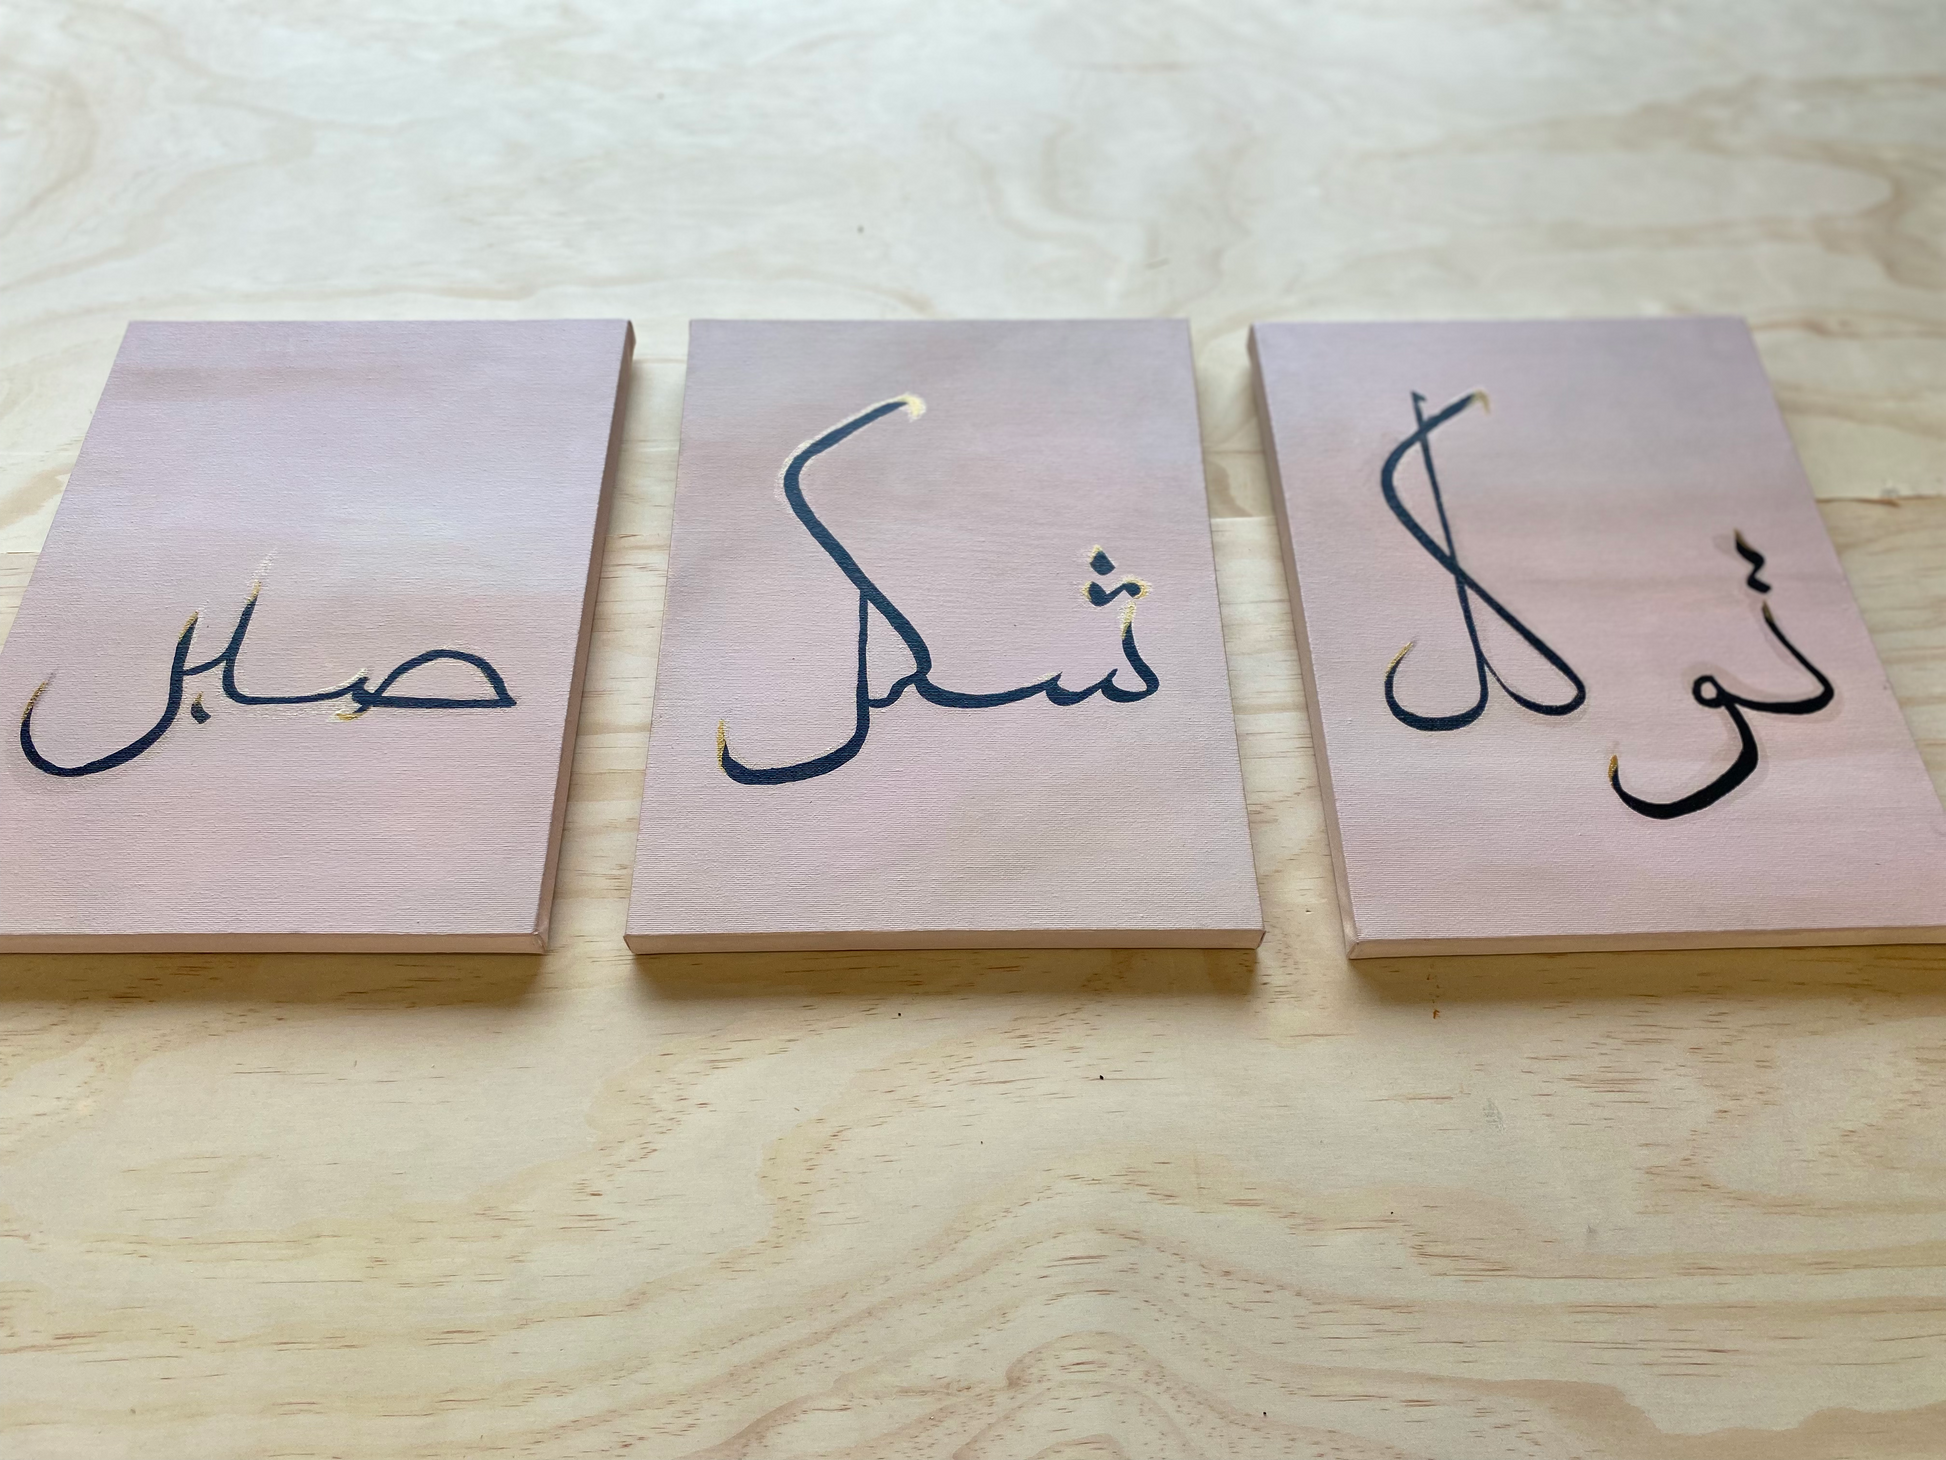 توكل
شكر
صبر